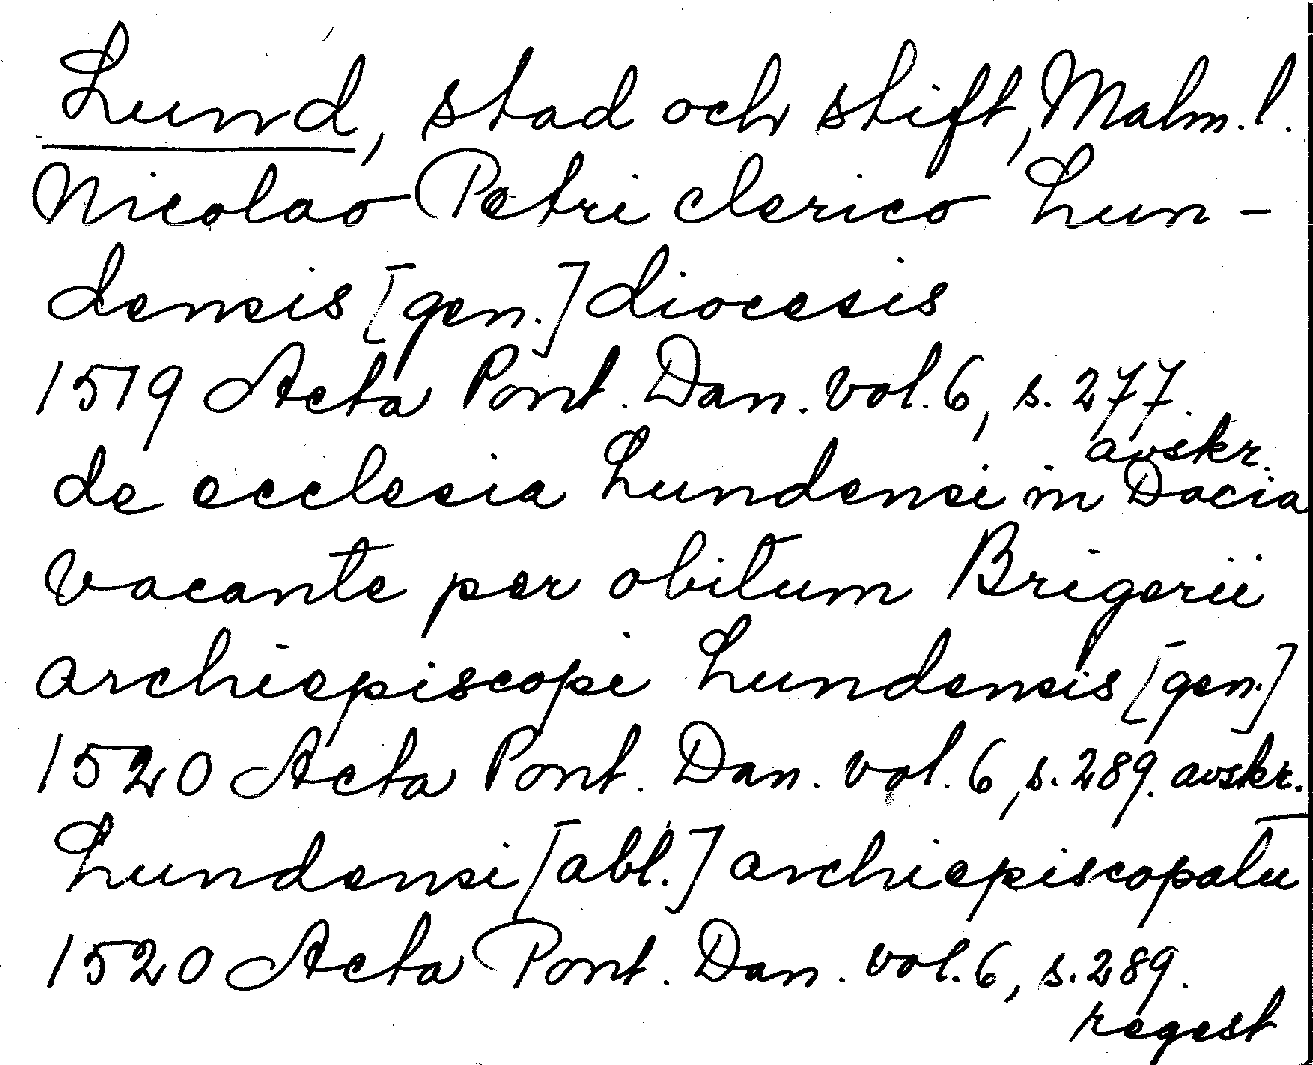 Lund, stad och stift, Malm. l.
Nicolao Petri clerico Lun-
densis [gen.] diocesis
1519 Acta Pont. Dan. vol. 6, s. 277.
avskr.
de ecclesia Lundensi in Dacia
vacante per obitum Brigerii
archiepiscopi Lundensis [gen.]
1520 Acta Pont. Dan. vol. 6, s. 289. avskr.
Lundensi [abl.] archiepiscopatu
1520 Acta Pont. Dan. vol. 6, s. 289.
regest